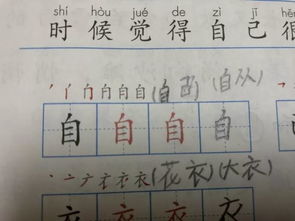 shí hòu jué de zì jǐ
时候觉得自己很
丿亻白白自自(自己)(自从)
自自自自
丶亠ナ才衣衣(花衣)(大衣)
衣衣衣衣